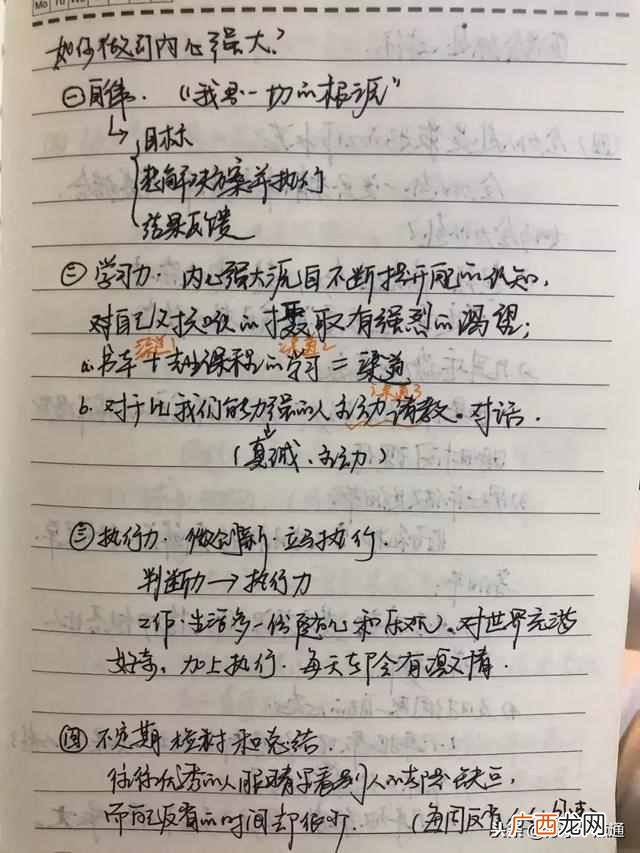 如何做到内心强大?
㊀自律. “我是一切的根源”
目标
想解决方案并执行
结果反馈
㊁学习力. 内心强大源自不断提升自我的认知,
对自己及技能的摄取有强烈的渴望;
渠道1 渠道2
a.书本+专业课程的学习=渠道
渠道3
b. 对于比我们能力强的人主动请教。对话.
(真诚、主动)
㊂执行力. 做创新.立马执行.
判断力→执行力
工作.生活多一份随心和乐观。对世界充满
好奇。加上执行.每天都会有激情.
㊃不定期检讨和总结.
往往优秀的人眼睛里看别人的都是缺点,
而自我反省的时间却很少. (每周反省
头条 通
广西龙网